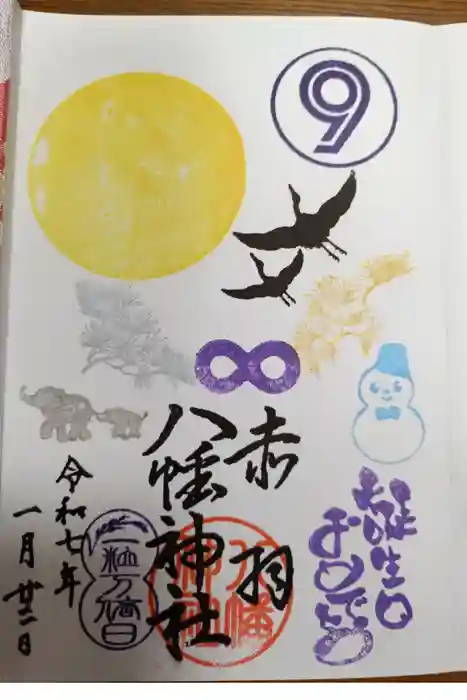 9
赤羽
八幡神社
令和七年
一月廿二日
一粒万倍日
八幡
神社
お誕生日